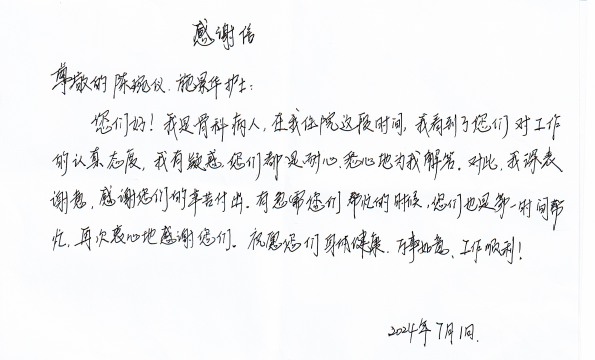 感谢信
尊敬的陈婉仪、施景华护士：
您们好！我是骨科病人，在我住院这段时间，我看到了您们对工作
的认真态度，我有疑惑，您们都是耐心、悉心地为我解答。对此，我深表
谢意，感谢您们的辛苦付出。有需您们帮忙的时候，您们也是第一时间帮
忙，再次衷心地感谢您们。祝愿您们身体健康、万事如意、工作顺利！
2024年7月1日.